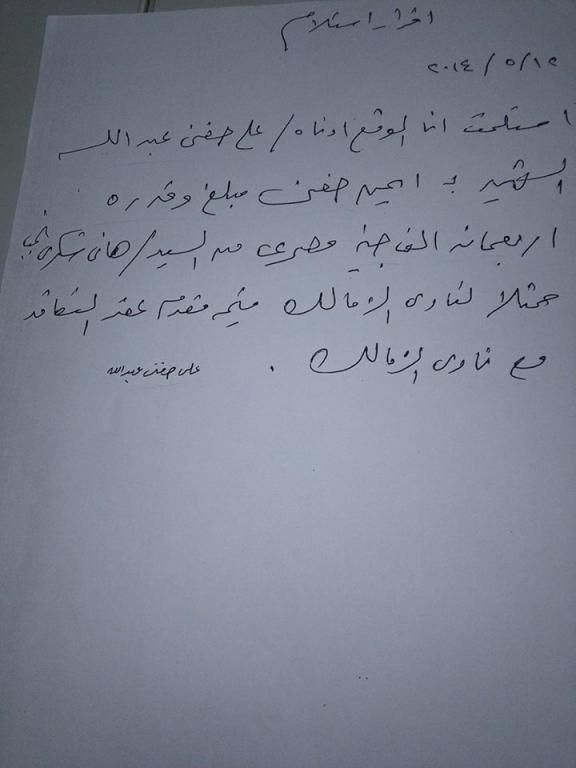 اقرار استلام
٢٠١٤/٥/١٢
استلمت انا الموقع ادناه/ على حفنى عبد الله
الشهير بـ ايمن حفنى مبلغ وقدره
اربعمائة الف جنية مصرى من السيد/ هانى شكرى
ممثلا لنادى الزمالك قيمة مقدم عقد التعاقد
مع نادى الزمالك .
على حفنى عبدالله